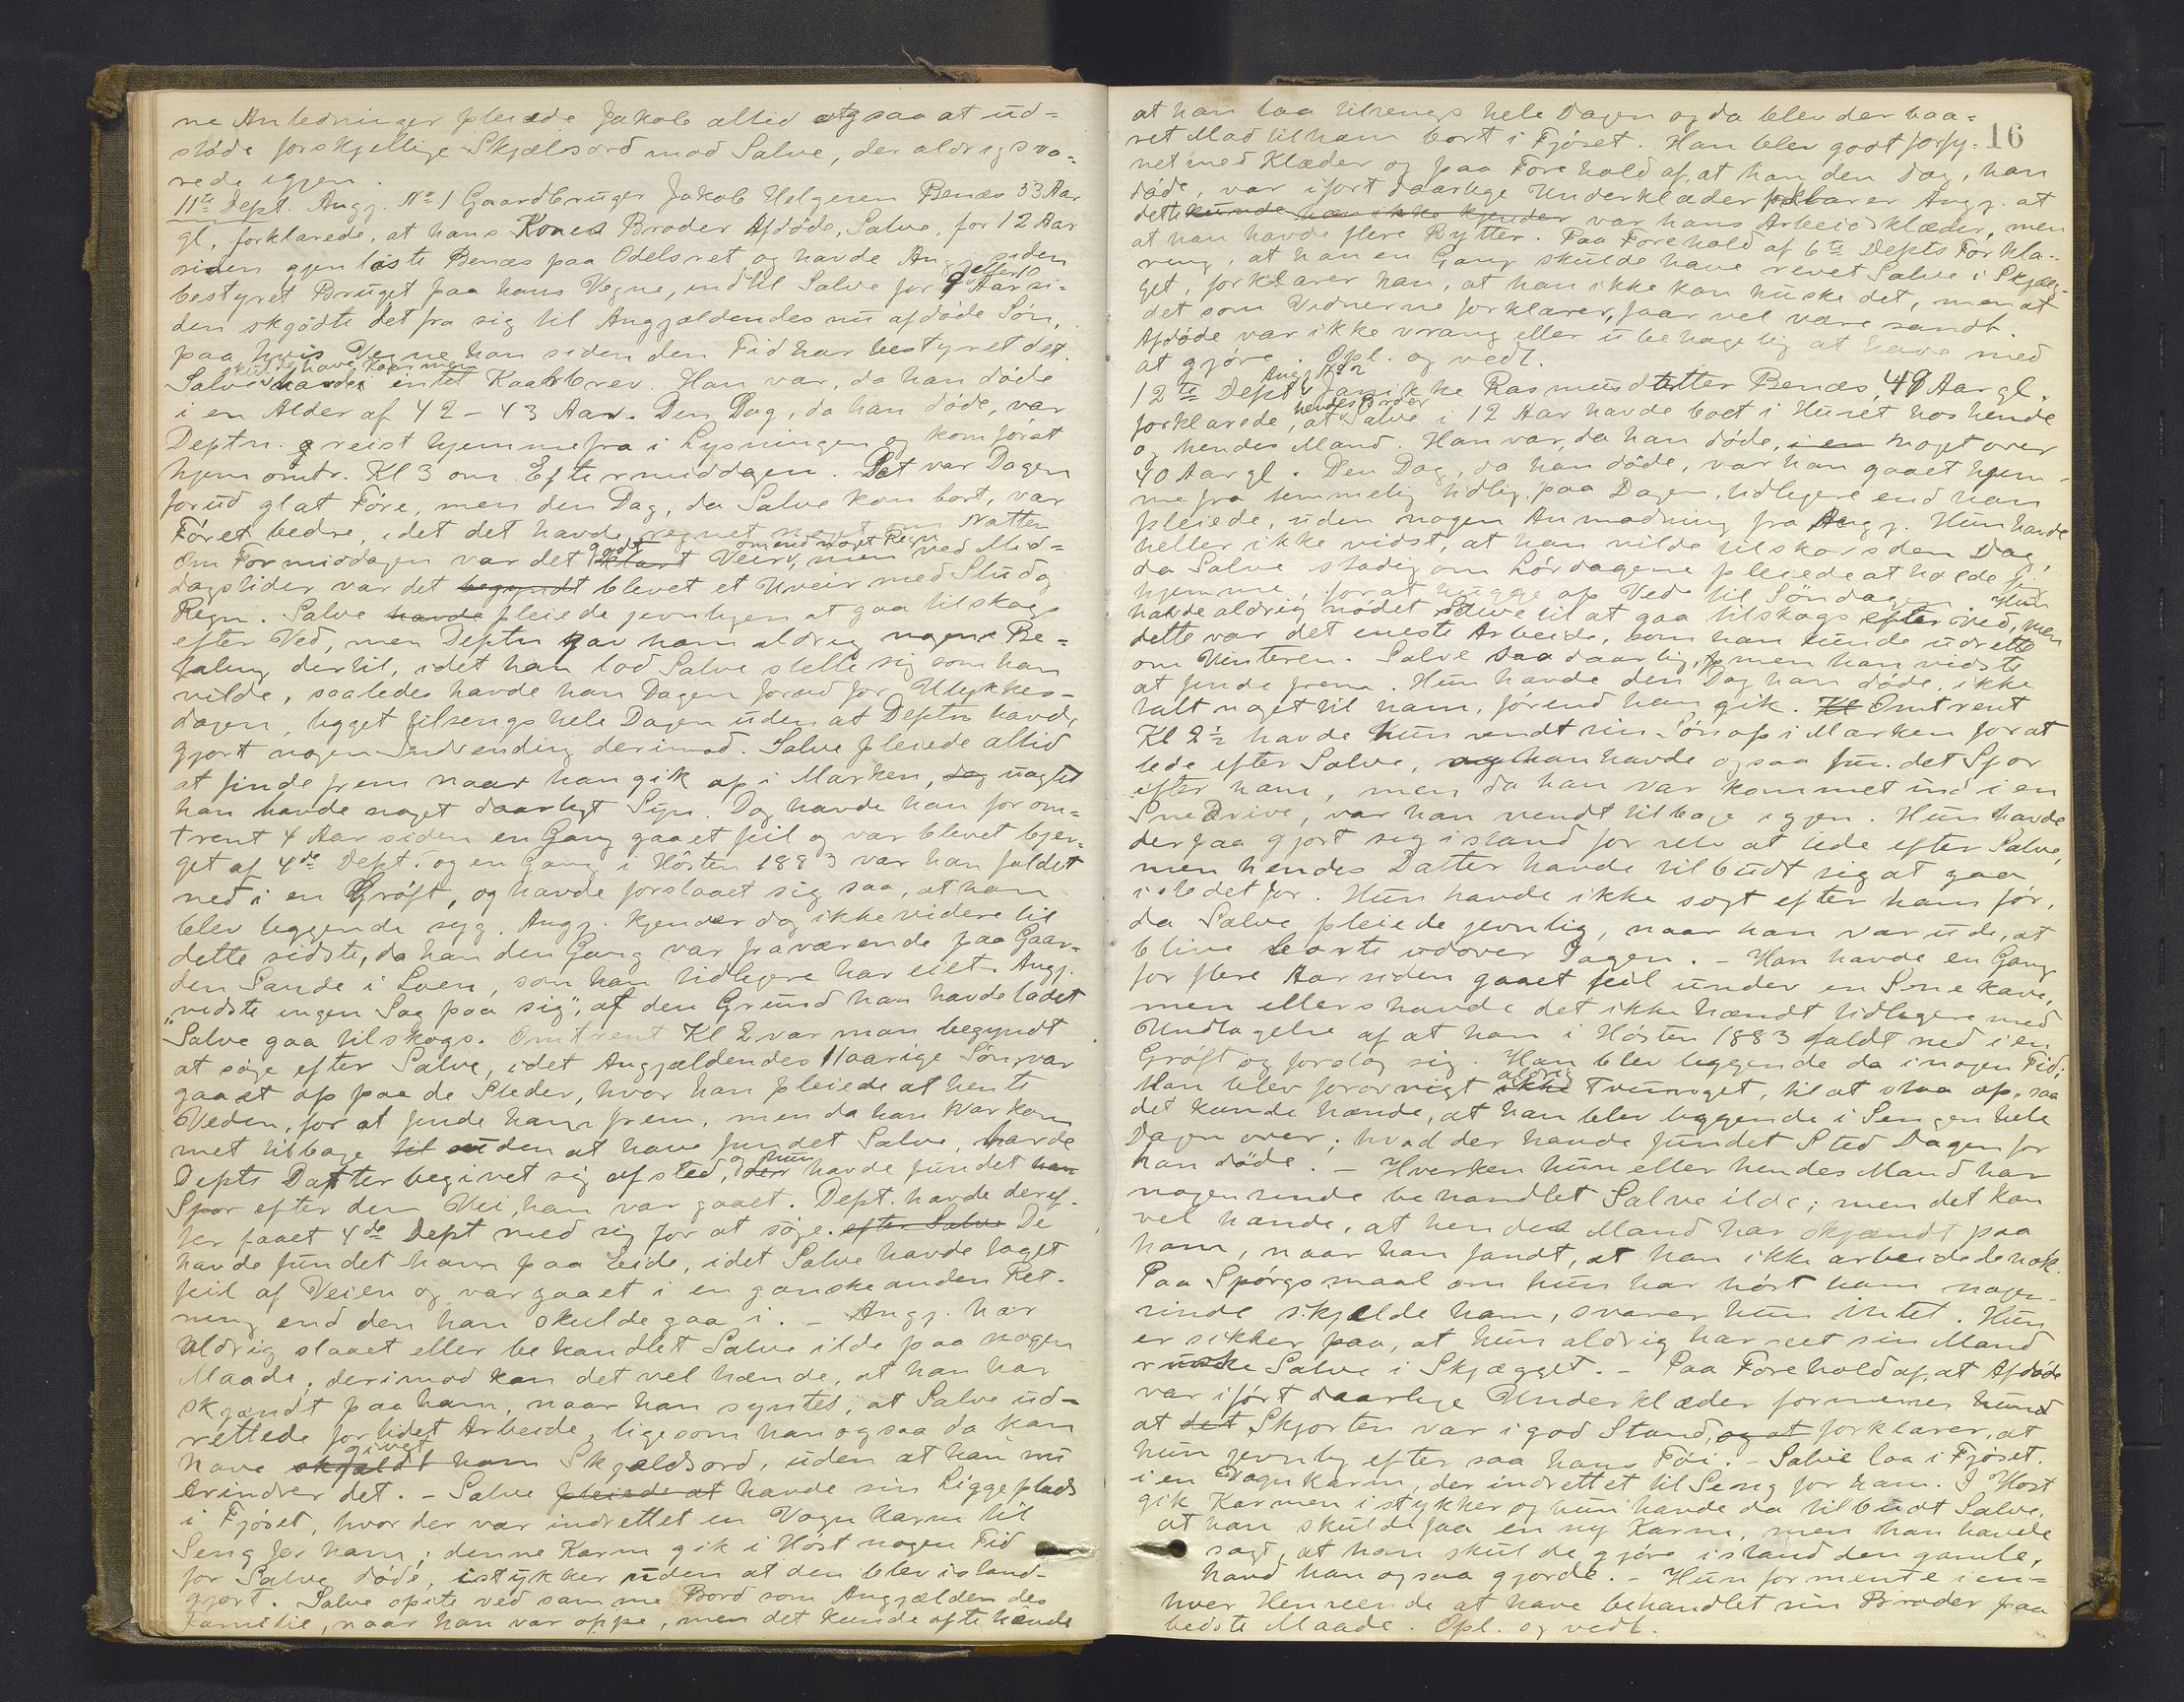 ne Anledninger pleiede Jakob altid ogsaa at ud-
støde forskjellige Skjælsord mod Salve, der aldrig sva-
rede igjen.
11te Dept. Angj. No 1 Gaardbruger Jakob Helgesen Benæs 53 Aar
gl, forklarede, at hans Kones Broder Afdøde, Salve, for 12 Aar
siden gjenløste Benæs paa Odelsret og havde Angj. siden
bestyret Bruget paa hans Vegne, indtil Salve for 9 eller 10 Aar si-
den skjødte det fra sig til Angjældendes nu afdøde Søn,
paa hvis Vegne han siden den Tid har bestyret det.
Salve skulde have Kaar men havde intet Kaarbrev. Han var, da han døde
i en Alder af 42 - 43 Aar. Den Dag, da han døde, var
Deptn. reist hjemmefra i Lysningen og kom først
hjem omtr. Kl 3 om Eftermiddagen. Det var Dagen
forud glat Føre, men den Dag, da Salve kom bort, var
Føret bedre, idet det havde regnet noget om Natten
Om Formiddagen var det godt klart Veir, omend noget Regn men ved Mid-
dagstider var det begyndt blevet et Uveir med Slud og
Regn. Salve havde pleiede jevnligen at gaa tilskogs
efter Ved, men Deptn gav ham aldrig nogen Be-
faling dertil, idet han lod Salve stelle sig som han
vilde, saaledes havde han Dagen forud for Ulykkes-
dagen, ligget tilsengs hele Dagen uden at Deptn havde
gjort nogen Indvending derimod. Salve pleiede altid
at finde frem naar han gik op i Marken, dog uagtet
han havde noget daarligt Syn. Dog havde han for om-
trent 4 Aar siden en Gang gaaet feil og var blevet bjer-
get af 4de Dept. og en Gang i Høsten 1883 var han faldet
ned i en Grøft, og havde forslaaet sig saa, at han
blev liggende syg. Angj. kjender dog ikke videre til
dette sidste, da han den Gang var fraværende paa Gaar-
den Sande i Loen, som han tidligere har eiet. Angj.
"vidste ingen Sag paa sig", af den Grund han havde ladet
Salve gaa tilskogs. Omtrent Kl 2 var man begyndt
at søge efter Salve, idet Angjældendes 11aarige Søn var
gaaet op paa de Steder, hvor han pleiede at hente
Veden, for at finde ham frem, men da han var kom
met tilbage til uden at have fundet Salve, havde
Depts Datter begivet sig afsted, og hun der havde fundet han
Spor efter den Vei, han var gaaet. Dept. havde deref-
ter faaet 4de Dept med sig for at søge. efter Salve De
havde fundet ham paa Leide, idet Salve havde taget
feil af Veien og var gaaet i en ganske anden Ret-
ning end den han skulde gaa i. - Angj. har
aldrig slaaet eller behandlet Salve ilde paa nogen
Maade, derimod kan det vel hænde, at han har
skjændt paa ham, naar han syntes, at Salve ud-
rettede for lidet Arbeide, ligesom han ogsaa da kan
have givet skjældt ham Skjældsord, uden at han nu
erindrer det. - Salve pleiede at havde sin Liggeplads
i Fjøset, hvor der var indrettet en Vogn karm til
Seng for ham; denne Karm gik i Høst nogen Tid
før Salve døde, istykker uden at den blev istand-
gjort. Salve spiste ved samme Bord som Angjældendes
Familie, naar han var oppe, men det kunde ofte hænde
16
at han laa tilsengs hele Dagen og da blev der baa-
ret Mad til ham bort i Fjøset. Han blev godt forsy-
net med Klæder og paa Forehold af, at han den Dag, han
døde, var iført daarlige Underklæder forklarer Angj. at
dette kunde han ikke kjender var hans Arbeidsklæder, men
at han havde flere Bytter. Paa Forehold af 6te Depts Forkla-
ring, at han en Gang skulde have revet Salve i Skjæg-
get, forklarer han, at han ikke kan huske det, men at
det som Vidnerne forklarer, faar vel være sandt.
Afdøde var ikke vrang eller ubehagelig at have med
at gjøre. Opl. og vedt.
12te Dept Angj No 2 Jannikke Rasmusdatter Benæs, 49 Aar gl.
forklarede, at hendes Broder Salve i 12 Aar havde boet i Huset hos hende
og hendes Mand. Han var, da han døde, i en noget over
40 Aar gl. Den Dag, da han døde, var han gaaet hjem-
mefra temmelig tidlig paa Dagen, tidligere end han
pleiede, uden nogen Anmodning fra Angj. Hun havde
heller ikke vidst, at han vilde tilskovs den Dag,
da Salve stadig om Lørdagene pleiede at holde sig
hjemme, forat hugge op Ved til Søndagen. Hun
havde aldrig nødet Salve til at gaa tilskogs efter Ved, men
dette var det eneste Arbeide, som han kunde udrette
om Vinteren. Salve saa daarlig, men han vidste
at finde frem. Hun havde den Dag han døde, ikke
talt noget til ham, førend han gik. Kl Omtrent
Kl 2½ havde hun sendt sin Søn op i Marken for at
lede efter Salve, og han havde ogsaa fundet Spor
efter ham, men da han var kommet ind i en
Snedrive, var han vendt tilbage igjen. Hun havde
derpaa gjort sig istand for selv at lede efter Salve,
men hendes Datter havde tilbudt sig at gaa
istedetfor. Hun havde ikke søgt efter ham før,
da Salve pleiede jevnlig, naar han var ude, at
blive borte udover Dagen. - Han havde en Gang
for flere Aar siden gaaet feil under en Snekave,
men ellers havde det ikke hændt tidligere med
Undtagelse af at han i Høsten 1883 faldt ned i en
Grøft og forslog sig. Han blev liggende da i nogen Tid;
Han blev forøvrigt aldrig ikke tvunget, til at staa op, saa
det kunde hænde, at han blev liggende i Sengen hele
Dagen over; hvad der havde fundet Sted Dagen før
han døde. - Hverken hun eller hendes Mand har
nogensinde behandlet Salve ilde; men det kan
vel hænde, at hendes Mand har skjændt paa
ham, naar han fandt, at han ikke arbeidede nok.
Paa Spørgsmaal om hun har hørt ham nogen-
sinde skjælde ham, svarer hun intet. Hun
er sikker paa, at hun aldrig har seet sin Mand
ruske Salve i Skjægget. - Paa Forehold af, at Afdøde
var iført daarlige Underklæder formener hun
at det Skjorten var i god Stand, og at forklarer, at
hun jevnlig efter saa hans Tøi. - Salve laa i Fjøset.
i en Vognkarm, der indrettet til Seng for ham. I Høst
gik Karmen istykker og hun havde da tilbudt Salve,
at han skulde faa en ny Karm, men han havde
sagt, at han skulde gjøre istand den gamle,
hvad han ogsaa gjorde. - Hun formente i en-
hver Henseende at have behandlet sin Broder paa
bedste Maade. Opl. og vedt.